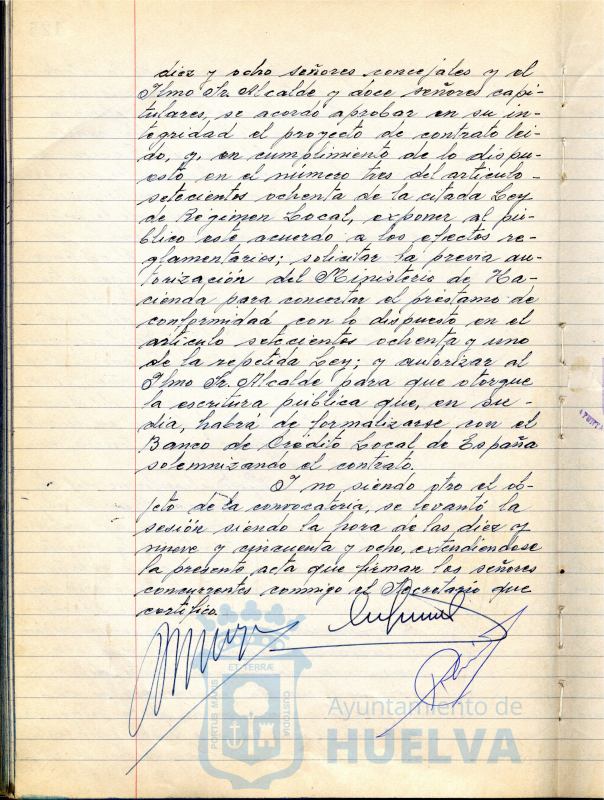 diez y ocho señores concejales y el
Ilmo Sr. Alcalde y doce señores capi-
tulares, se acordó aprobar en su in-
tegridad el proyecto de contrato lei-
do, y, en cumplimiento de lo dispu-
esto en el número tres del articulo
setecientos ochenta de la citada Ley
de Régimen Local, exponer al pú-
blico este acuerdo a los efectos re-
glamentarios; solicitar la previa au-
torización del Ministerio de Ha-
cienda para concertar el préstamo de
conformidad con lo dispuesto en el
articulo setecientos ochenta y uno
de la repetida Ley; y autorizar al
Ilmo Sr. Alcalde para que otorgue
la escritura pública que, en su
dia, habrá de formalizarse con el
Banco de Crédito Local de España
solemnizando el contrato.
Y no siendo otro el ob-
jeto de la convocatoria, se levantó la
sesión siendo la hora de las diez y
nueve y cincuenta y ocho, extendiendose
la presente acta que firman los señores
concurrentes conmigo el Secretario que
certifico.
ET TERRÆ
PORTUS MARIS
CUSTODIA
Ayuntamiento de
HUELVA